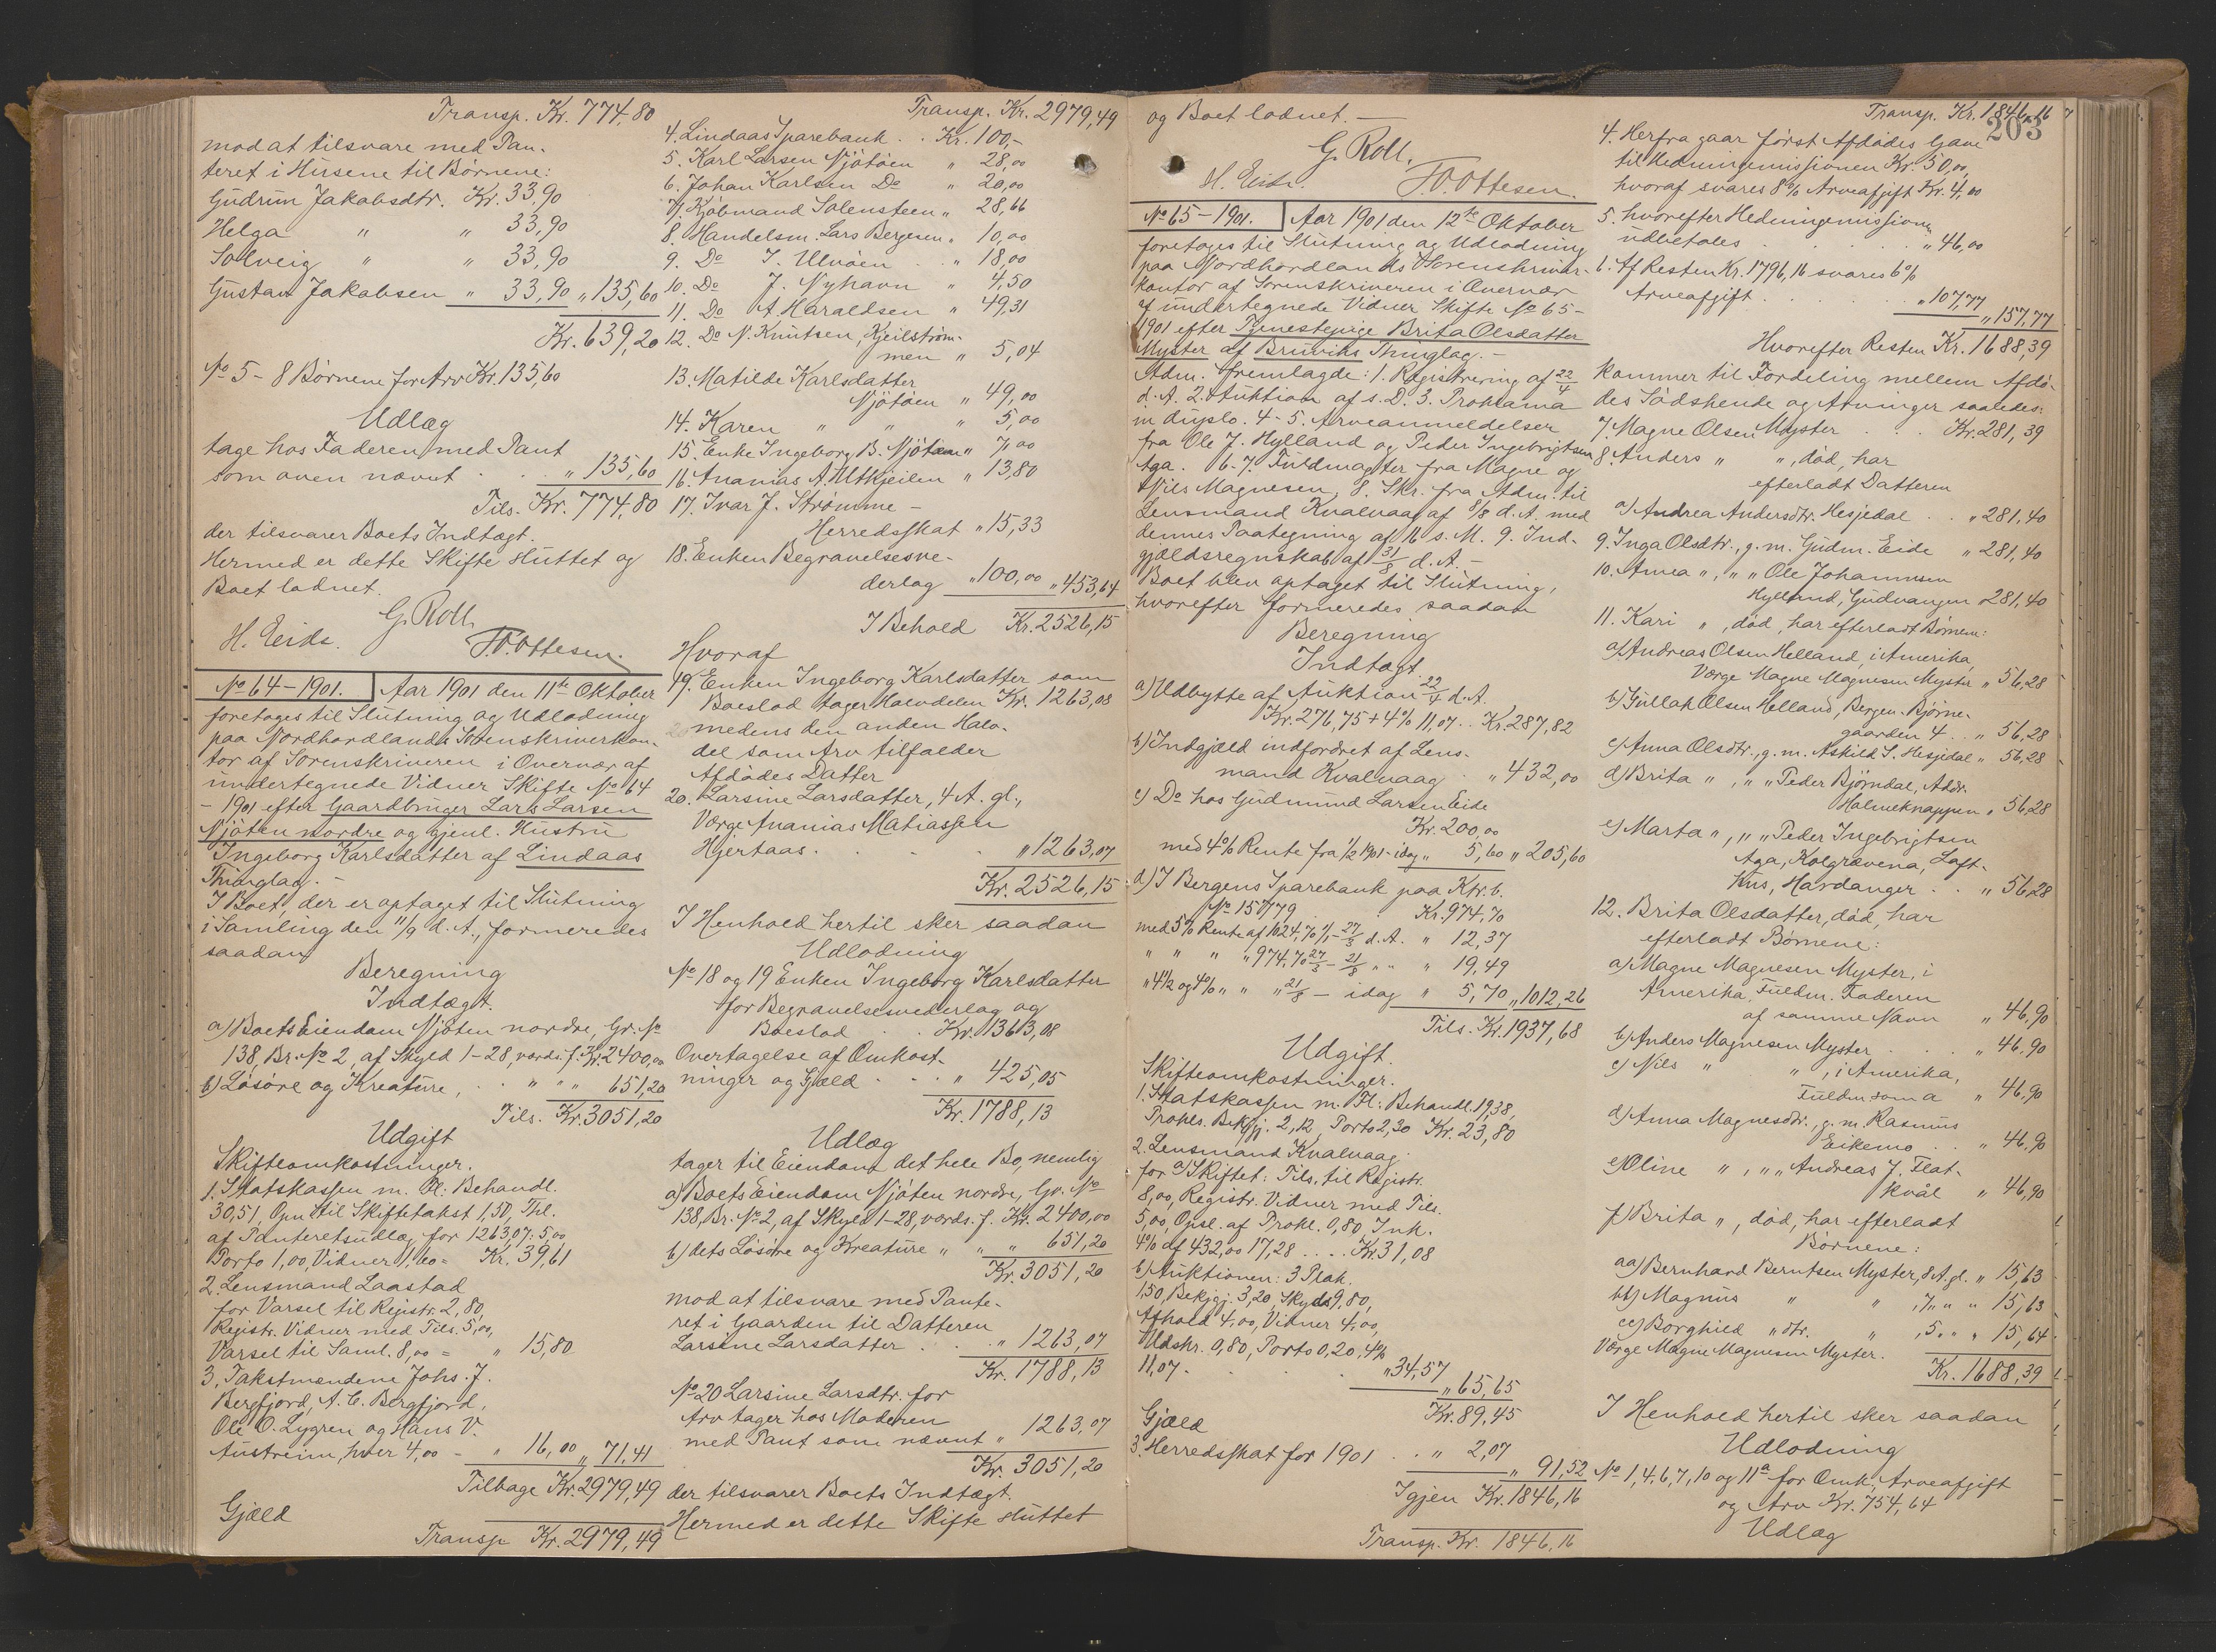 Transp. Kr. 774,80
mod at tilsvare med Pan-
teret i Husene til Børnene:
Gudrun Jakobsdtr. Kr. 33,90
Helga " " 33,90
Solveig " " 33,90
Gustav Jakobsen " 33,90 " 135,60
Kr. 639,20
No 5-8 Børnene for Arv Kr. 135,60
Udlæg
tage hos Faderen med Pant
som oven nævnt . . " 135,60
Tils. Kr. 774,80
der tilsvarer Boets Indtægt.
Hermed er dette Skifte sluttet og
Boet lodnet.
G. Roll.
H. Eide. F.O. Ottesen.
No 64-1901. Aar 1901 den 11te Oktober
foretoges til Slutning og Udlodning
paa Nordhordlands Sorenskriverkon-
tor af Sorenskriveren i Overvær af
undertegnede Vidner Skifte No 64
- 1901 efter Gaardbruger Lars Larsen
Njøten nordre og gjenl. Hustru
Ingeborg Karlsdatter af Lindaas
Thinglag. -
I Boet, der er optaget til Slutning
i Samling den 11/9 d. A., formeredes
saadan
Beregning
Indtægt.
a) Boets Eiendom Njøten nordre, Gr. No
138, Br. No 2, af Skyld 1-28, værds. f. Kr. 2400,00
b) Løsøre og Kreature, . . " " " 651,20
Tils. Kr. 3051,20
Udgift
Skifteomkostninger.
1. Statskassen m. Fl: Behandl.
30,51, Opn. til Skiftetakst 1,50, Thl.
af Panteretsudlæg for 1263,07: 5,00
Porto 1,00, Vidner 1,60 = Kr. 39,61
2. Lensmand Laastad
for Varsel til Registr. 2,80,
Registr. Vidner med Tils. 5,00,
Varsel til Saml. 8,00 = " 15,80
3. Takstmændene Johs. J.
Bergfjord, A. C. Bergfjord,
Ole O. Lygren og Hans V.
Austreim, hver 4,00 - " 16,00 " 71,41
Tilbage Kr. 2979,49
Gjæld
Transp Kr. 2979,49
Transp. Kr. 2979,49
4. Lindaas Sparebank . . Kr. 100,-
5. Karl Larsen Njøtøen " 28,00
6. Johan Karlsen Do " 20,00
7. Kjøbmand Solensteen " 28,66
8. Handelsm. Lars Bergesen " 10,00
9. Do I. Ulvøen . . " 18,00
10. Do J. Nyhavn " 4,50
11. Do A. Haraldsen " 49,31
12. Do N. Knutsen, Kjeilstrøm-
men " 5,04
13. Matilde Karlsdatter
Njøtøen " 49,00
14. Karen " " " 5,00
15. Enke Ingeborg B. Njøtøen " 7,00
16. Ananias A. Utkjeilen " 13,80
17. Ivar J. Strømme -
Herredsskat " 15,33
18. Enken Begravelsesve-
derlag " 100,00 " 453,64
I Behold Kr. 2526,15
Hvoraf
19. Enken Ingeborg Karlsdatter som
Boeslod tager Halvdelen Kr. 1263,08
medens den anden Halv-
del som Arv tilfalder
Afdødes Datter
20. Larsine Larsdatter, 4 A. gl.,
Værge Ananias Matiassen
Hjertaas. . . . " 1263,07
Kr. 2526,15
I Henhold hertil sker saadan
Udlodning
No 18 og 19 Enken Ingeborg Karlsdatter
for Begravelsesvederlag og
Boeslod . . Kr. 1363,08
Overtagelse af Omkost-
ninger og Gjæld . . . " 425,05
Kr. 1788,13
Udlæg
tager til Eiendom det hele Bo, nemlig
a) Boets Eiendom Njøten nordre, Gr. No
138, Br. No 2, af Skyld 1-28, værds. f. Kr. 2400,00
b) dets Løsøre og Kreature " " " 651,20
Kr. 3051,20
mod at tilsvare med Pante-
ret i Gaarden til Datteren
Larsine Larsdatter . . . " 1263,07
Kr. 1788,13
No 20 Larsine Larsdtr. for
Arv tager hos Moderen
med Pant som nævnt " 1263,07
Kr. 3051,20
der tilsvarer Boets Indtægt.
Hermed er dette Skifte sluttet
og Boet lodnet. -
G. Roll.
H. Eide. F.O. Ottesen.
No 65-1901. Aar 1901 den 12te Oktober
foretoges til Slutning og Udlodning
paa Nordhordlands Sorenskriver-
kontor af Sorenskriveren i Overvær
af undertegnede Vidner Skifte No 65-
1901 efter Tjenestepige Brita Olsdatter
Myster af Bruviks Thinglag. -
Adm. fremlagde: 1. Registrering af 22/4
d. A. 2. Auktion af s. D. 3. Proklama
in duplo. 4-5. Arveanmeldelser
fra Ole J. Hylland og Peder Ingebrigtsen
Aga. 6-7. Fuldmagter fra Magne og
Nils Magnesen, 8. Skr. fra Adm. til
Lensmand Kvalvaag af 8/8 d. A. med
dennes Paategning af 16 s. M. 9. Ind-
gjældsregnskab af 31/8 d. A. -
Boet blev optaget til Slutning,
hvorefter formeredes saadan
Beregning
Indtægt
a) Udbytte af Auktion 22/4 d. A.
Kr. 276,75 + 4% 11,07 . . Kr. 287,82
b) Indgjæld indfordret af Lens-
mand Kvalvaag . " 432,00
c) Do hos Gudmund Larsen Eide
Kr. 200,00
med 4% Rente fra 1/2 1901 - idag " 5,60 " 205,60
d) I Bergens Sparebank paa Ktr. b.
No 150179 . . Kr. 974,70
med 5% Rente af 1024,70 1/1-27/3 d. A. " 12,37
" " " " 974,70 27/3 - 21/8 " " " 19,49
" 4½ og 4% " " " 21/8 - idag " 5,70 " 1012,26
Tils. Kr. 1937,68
Udgift.
Skifteomkostninger.
1. Statskassen m. Fl: Behandl. 19,38,
Prokls. Bekgj. 2,12, Porto 2,30 Kr. 23,80
2. Lensmand Kvalvaag
for a) Skiftet: Tils. til Registr.
8,00, Registr. Vidner med Tils.
5,00, Opsl. af Prokl. 0,80, Ink.
4% af 432,00 17,28 . . . . Kr. 31,08
b) Auktionen: 3 Plak.
1,50, Bekjgj. 3,20, Skyds 9,80,
Afhold 4,00, Vidner 4,00,
Udskr. 0,80, Porto 0,20, 4%
11,07. . . . . " 34,57
" 65,65
Kr. 89,45
Gjæld
3. Herredsskat for 1901 . . " 2,07
" 91,52
Igjen Kr. 1846,16
Transp. Kr. 1846,16
Transp. Kr. 1846,16
203
4. Herfra gaar først Afdødes Gave
til Hedningemissionen Kr. 50,00,
hvoraf svares 8% Arveafgift Kr. 4,00
5. hvorefter Hedningemissionen
udbetales . . . . " 46,00
6. Af Resten Kr. 1796,16 svares 6%
Arveafgift . . . . . " 107,77
" 157,77
Hvorefter Resten Kr. 1688,39
kommer til Fordeling mellem Afdø-
des Sødskende og Arvinger saaledes:
7. Magne Olsen Myster . . . Kr. 281,39
8. Anders " " , død, har
efterladt Datteren
a) Andrea Andersdtr. Hesjedal . . " 281,40
9. Inga Olsdtr., g. m. Gudm. Eide " 281,40
10. Anna " , " " Ole Johannesen
Hylland, Gudvangen " 281,40
11. Kari " , død, har efterladt Børnene:
a) Andreas Olsen Helland, i Amerika,
Værge Magne Magnesen Myster " 56,28
b) Gullak Olsen Helland, Bergen. Bjørne-
gaarden 4 . . " 56,28
c) Anna Olsdtr., g. m. Askild S. Hesjedal " 56,28
d) Brita " , " " Peder Bjørndal, Addr.
Holmeknappen " 56,28
e) Marta " , " " Peder Ingebrigtsen
Aga, Kolgravena, Loft-
hus, Hardanger . . " 56,28
12. Brita Olsdatter, død, har
efterladt Børnene:
a) Magne Magnesen Myster, i
Amerika, Fuldm. Faderen
af samme Navn " 46,90
b) Anders Magnesen Myster . . . " 46,90
c) Nils " " , i Amerika,
Fuldm. som a " 46,90
d) Anna Magnesdtr., g. m. Rasmus
Eikemo . . " 46,90
e) Oline " , " " Andreas J. Flat-
kvål " 46,90
f) Brita " , død, har efterladt
Børnene:
aa) Bernhard Berntsen Myster, 8 A. gl. " 15,63
bb) Magnus " " , 7 " " " 15,63
cc) Borghild " dtr. " , 5 " " " 15,64
Værge Magne Magnesen Myster.
Kr. 1688,39
I Henhold hertil sker saadan
Udlodning
No 1, 4, 6, 7, 10 og 11a for Omk., Arveafgift
og Arv Kr. 754,64
Udlæg